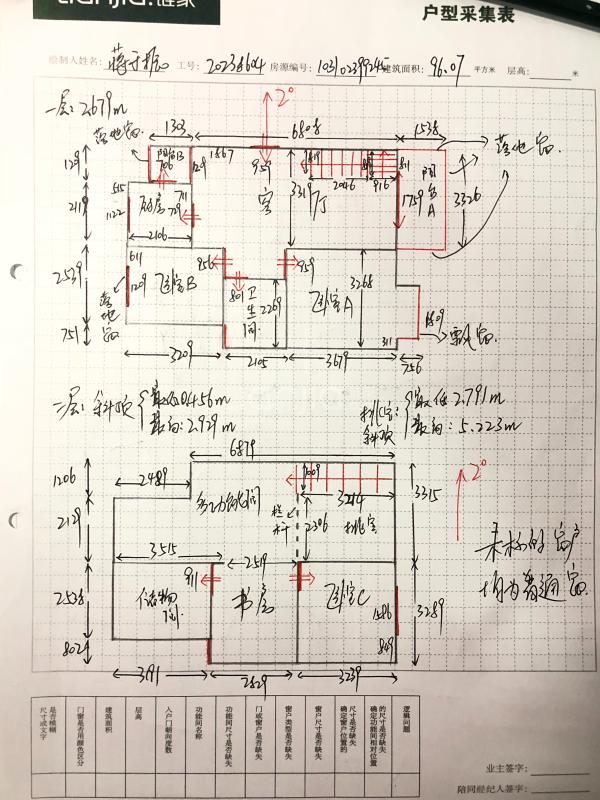 lianjia.链家
户型采集表
绘制人姓名: 工号: 20238604 房源编号: 建筑面积: 96.07 平方米 层高: 米
一层: 2.679m
2°
落地窗 1303 6808 1538
落地窗
阳台B 706 1867 959 2046 916 811 阳台A
129 129
515 厨房 711 709 客厅 3319 1759 3326
2119 1122
2106
611 856 959 3268
2539 1209 卧室B 801 卫生间 2269 卧室A
落地窗 1809
751 311 飘窗.
3209 2105 3679 756
二层: 斜顶 最低0.456m
最高: 2.929m
挑空: 斜顶 最低2.791m
最高: 5.223m
6879
1206 2489 1009 3315 2°
多功能间 3214
2129 栏杆 2306 挑空
未标的窗户
均为普通窗.
3515 2519
911
2538 储物间 书房 卧室C 1586 3289
802 849
3191 2829 3239
是否模糊尺寸或文字
门窗是否用颜色区分
建筑面积
层高
入户门朝向度数
功能间名称
功能间尺寸是否缺失
门或窗户是否缺失
窗户类型是否缺失
窗户尺寸是否缺失
尺寸是否缺失确定窗户位置的
的尺寸是否缺失确定功能间相对位置
逻辑问题
业主签字:
陪同经纪人签字: